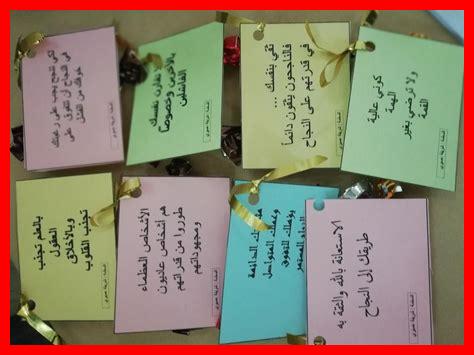 لكي تنجح يجب على رغبتك
في النجاح أن تتفوق على
خوفك من الفشل
تقارن نفسك
بالآخرين وخصوصاً
الفاشلين
ثقي بنفسك ...
فالناجحون يثقون دائماً
في قدرتهم على النجاح
كوني عالية
الهمة
ولا ترضي بغير
القمة
بالعلم تجذب
العقول
وبالأخلاق
تجذب القلوب
الأشخاص العظماء
هم أشخاص عاديون
طوروا من قدراتهم
ومجهوداتهم
الدائمة
وعملك المتواصل
يؤهلك للتفوق
المستمر
الاستعانة بالله والثقة به
طريقك إلى النجاح